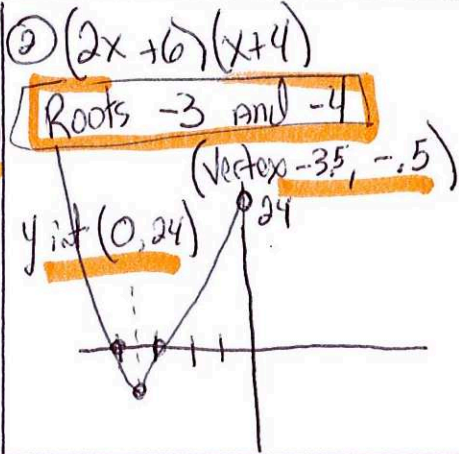 ② (2x +6)(x+4)
Roots -3 and -4
(Vertex -3.5, -.5)
24
y int (0, 24)